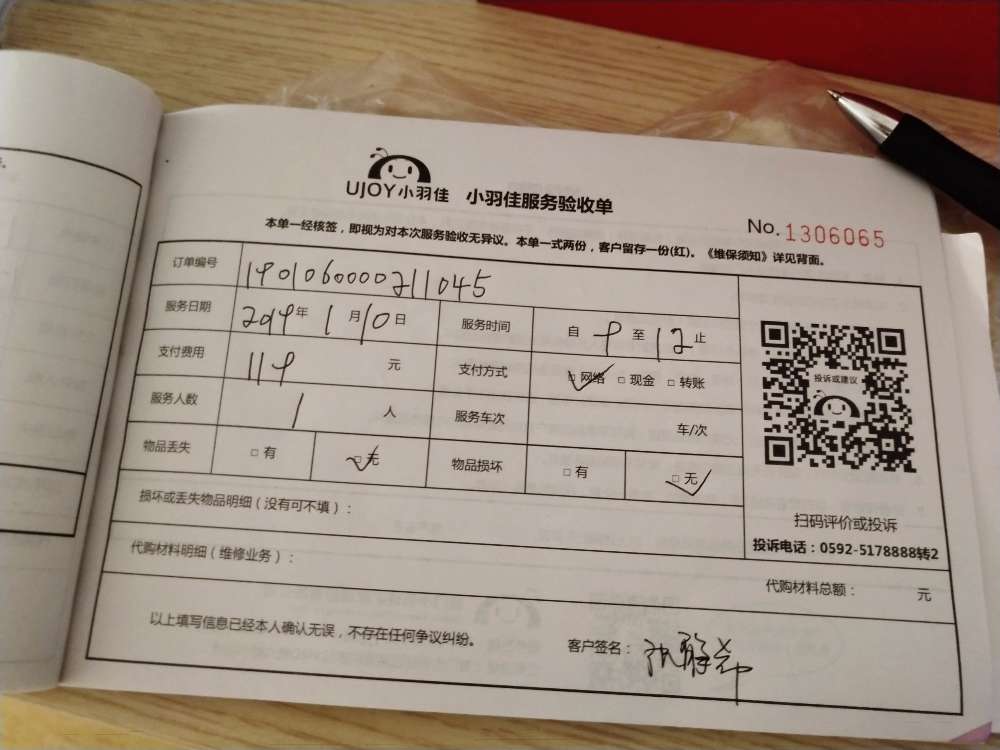 UJOY小羽佳 小羽佳服务验收单
No. 1306065
本单一经核签，即视为对本次服务验收无异议。本单一式两份，客户留存一份(红)。《维保须知》详见背面。
订单编号 1901060000211045
服务日期 2019年1月10日 服务时间 自9至12止
支付费用 119 元 支付方式 网络 □ 现金 □ 转账
服务人数 1 人 服务车次 车/次
物品丢失 □ 有 □ 无 物品损坏 □ 有 □ 无
投诉或建议
损坏或丢失物品明细（没有可不填）：
扫码评价或投诉
投诉电话：0592-5178888转2
代购材料明细（维修业务）：
代购材料总额： 元
以上填写信息已经本人确认无误，不存在任何争议纠纷。
客户签名：